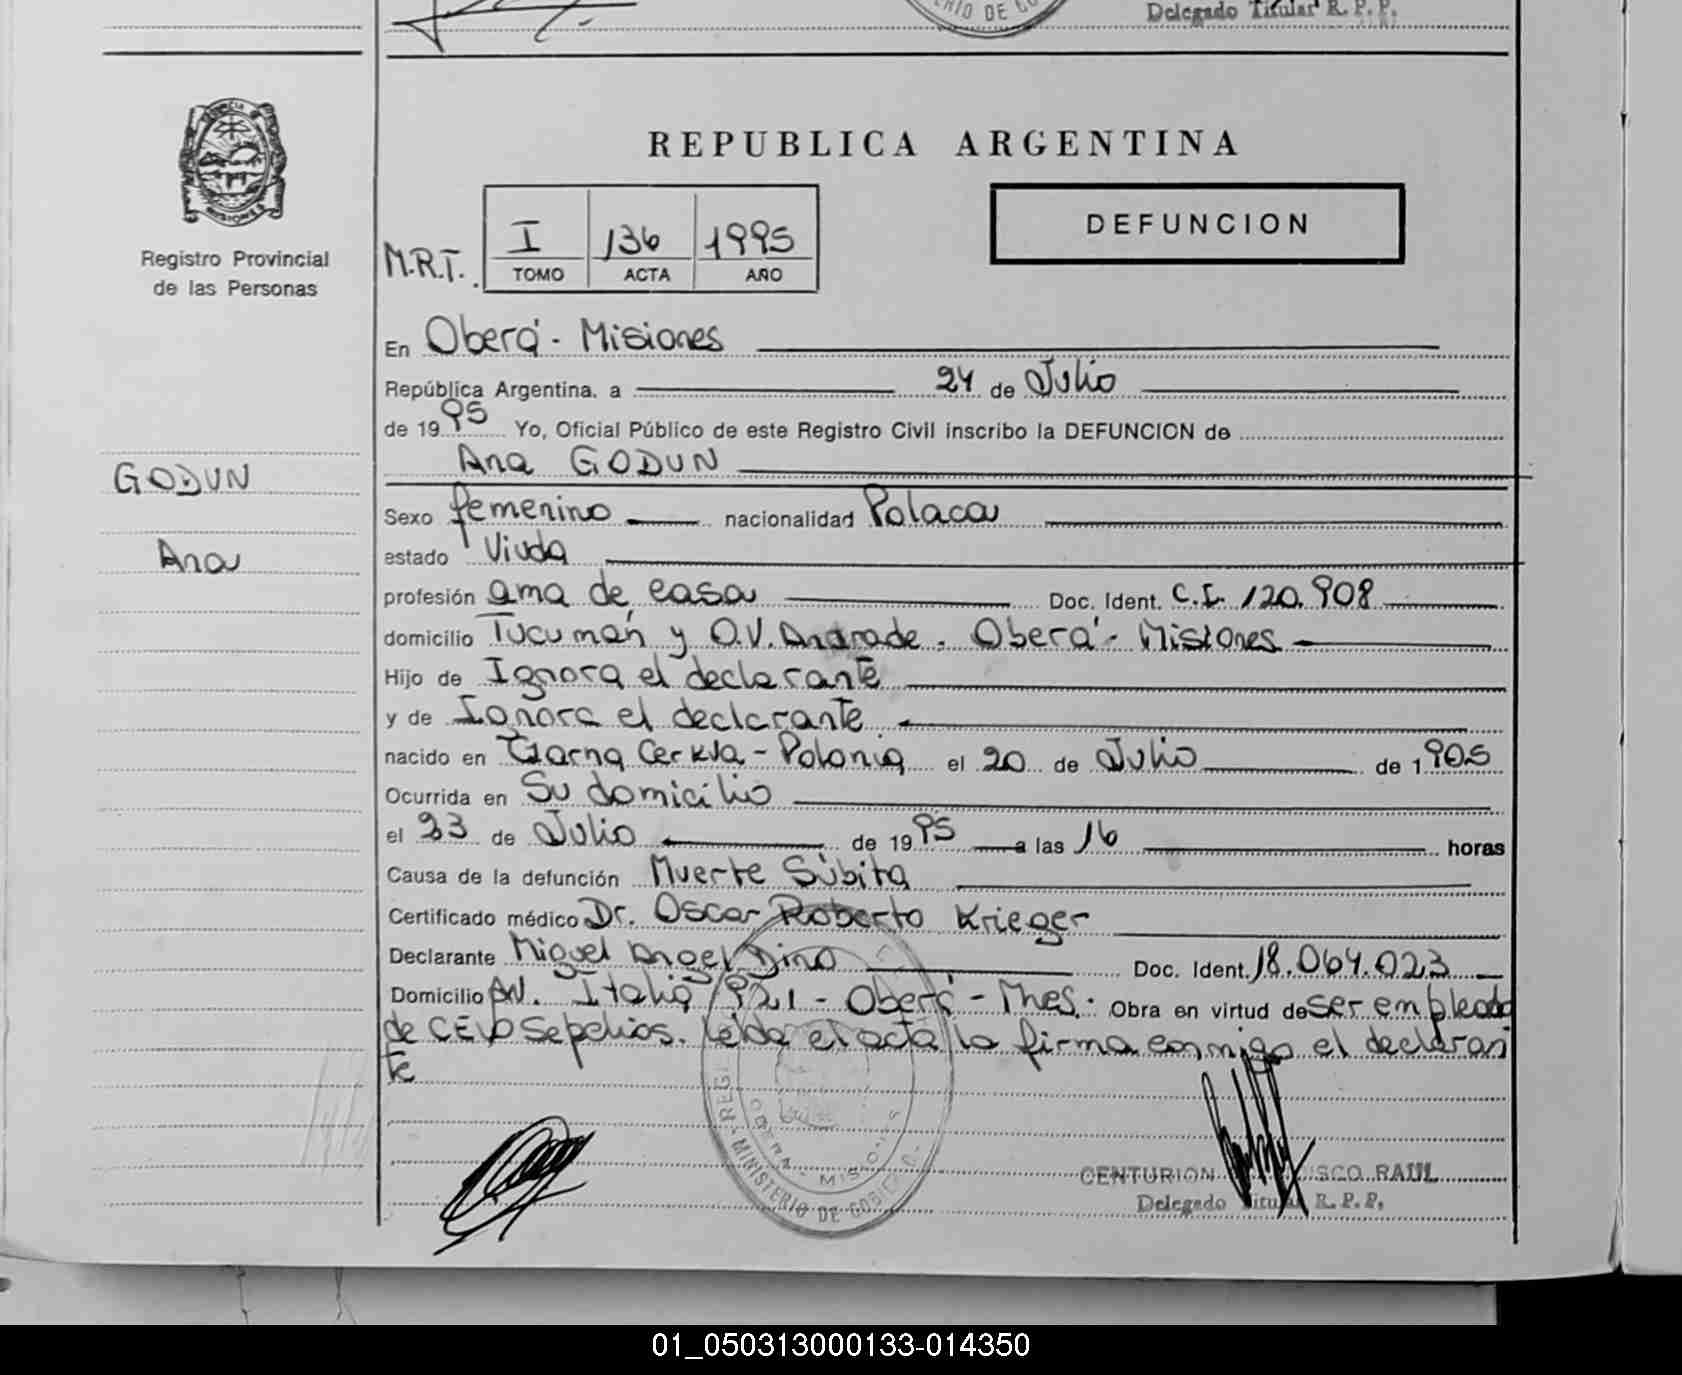 Delegado Titular R. P. P.
REPUBLICA ARGENTINA
DEFUNCION
M.R.T. I 136 1995
TOMO ACTA AÑO
Registro Provincial
de las Personas
En Oberá - Misiones
República Argentina, a 24 de Julio
de 1995 Yo, Oficial Público de este Registro Civil inscribo la DEFUNCION de
Ana GODUN
GODUN
Ana
Sexo femenino nacionalidad Polaca
estado Viuda
profesión ama de casa Doc. Ident. C.I. 120.908
domicilio Tucumán y O.V. Andrade. Oberá - Misiones
Hijo de Ignora el declarante
y de Ignora el declarante
nacido en Czarna Cerkva - Polonia el 20 de Julio de 1905
Ocurrida en Su domicilio
el 23 de Julio de 1995 a las 16 horas
Causa de la defunción Muerte Súbita
Certificado médico Dr. Oscar Roberto Krieger
Declarante Miguel Angel Dino Doc. Ident. 18.064.023
Domicilio Av. Italia 921 - Oberá - Mnes. Obra en virtud de ser empleado
de CELO Sepelios. Leída el acta la firma conmigo el declaran
te
OBERA - MISIONES
MINISTERIO DE GOBIE
CENTURION SCO RAUL
Delegado Titular R. P. P.
01_050313000133-014350